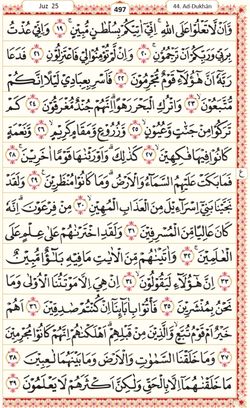 Juz 25
497
44. Ad-Dukhān
وَّاَنْ لَّا تَعْلُوْا عَلَى اللّٰهِ ۚ اِنِّيْۤ اٰتِيْكُمْ بِسُلْطٰنٍ مُّبِيْنٍ ۱۹ وَاِنِّيْ عُذْتُ
بِرَبِّيْ وَرَبِّكُمْ اَنْ تَرْجُمُوْنِ ۲۰ وَاِنْ لَّمْ تُؤْمِنُوْا لِيْ فَاعْتَزِلُوْنِ ۲۱ فَدَعَا
رَبَّهٗۤ اَنَّ هٰۤؤُلَآءِ قَوْمٌ مُّجْرِمُوْنَ ۲۲ فَاَسْرِ بِعِبَادِيْ لَيْلًا اِنَّكُمْ
مُّتَّبَعُوْنَ ۲۳ وَاتْرُكِ الْبَحْرَ رَهْوًا ؕ اِنَّهُمْ جُنْدٌ مُّغْرَقُوْنَ ۲۴ كَمْ
تَرَكُوْا مِنْ جَنّٰتٍ وَّعُيُوْنٍ ۲۵ وَّزُرُوْعٍ وَّمَقَامٍ كَرِيْمٍ ۲۶ وَّنَعْمَةٍ
كَانُوْا فِيْهَا فٰكِهِيْنَ ۲۷ كَذٰلِكَ ۚ وَاَوْرَثْنٰهَا قَوْمًا اٰخَرِيْنَ ۲۸
فَمَا بَكَتْ عَلَيْهِمُ السَّمَآءُ وَالْاَرْضُ وَمَا كَانُوْا مُنْظَرِيْنَ ۲۹ وَلَقَدْ
نَجَّيْنَا بَنِيْۤ اِسْرَآءِيْلَ مِنَ الْعَذَابِ الْمُهِيْنِ ۳۰ مِنْ فِرْعَوْنَ ؕ اِنَّهٗ
كَانَ عَالِيًا مِّنَ الْمُسْرِفِيْنَ ۳۱ وَلَقَدِ اخْتَرْنٰهُمْ عَلٰى عِلْمٍ عَلَى
الْعٰلَمِيْنَ ۳۲ وَاٰتَيْنٰهُمْ مِّنَ الْاٰيٰتِ مَا فِيْهِ بَلٰٓؤٌا مُّبِيْنٌ
۳۳ اِنَّ هٰۤؤُلَآءِ لَيَقُوْلُوْنَ ۳۴ اِنْ هِيَ اِلَّا مَوْتَتُنَا الْاُوْلٰى وَمَا
نَحْنُ بِمُنْشَرِيْنَ ۳۵ فَاْتُوْا بِاٰبَآئِنَاۤ اِنْ كُنْتُمْ صٰدِقِيْنَ ۳۶ اَهُمْ
خَيْرٌ اَمْ قَوْمُ تُبَّعٍ ۙ وَّالَّذِيْنَ مِنْ قَبْلِهِمْ ؕ اَهْلَكْنٰهُمْ ۫ اِنَّهُمْ كَانُوْا مُجْرِمِيْنَ
۳۷ وَمَا خَلَقْنَا السَّمٰوٰتِ وَالْاَرْضَ وَمَا بَيْنَهُمَا لٰعِبِيْنَ ۳۸
مَا خَلَقْنٰهُمَاۤ اِلَّا بِالْحَقِّ وَلٰكِنَّ اَكْثَرَهُمْ لَا يَعْلَمُوْنَ ۳۹